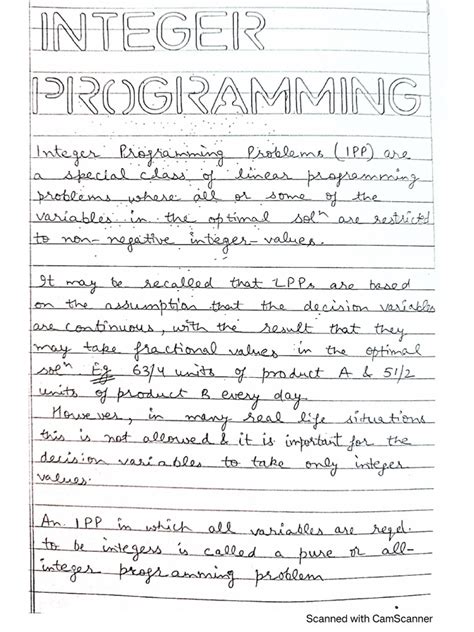 INTEGER
PROGRAMMING
Integer Programming Problems (IPP) are
a special class of linear programming
problems where all or some of the
variables in the optimal solⁿ are restricted
to non-negative integer-values.
It may be recalled that LPPs are based
on the assumption that the decision variables
are continuous, with the result that they
may take fractional values in the optimal
solⁿ Eg 63/4 units of product A & 51/2
units of product B every day.
However, in many real life situations
this is not allowed & it is important for the
decision variables to take only integer
values.
An IPP in which all variables are reqd.
to be integers is called a pure or all-
integer programming problem
Scanned with CamScanner